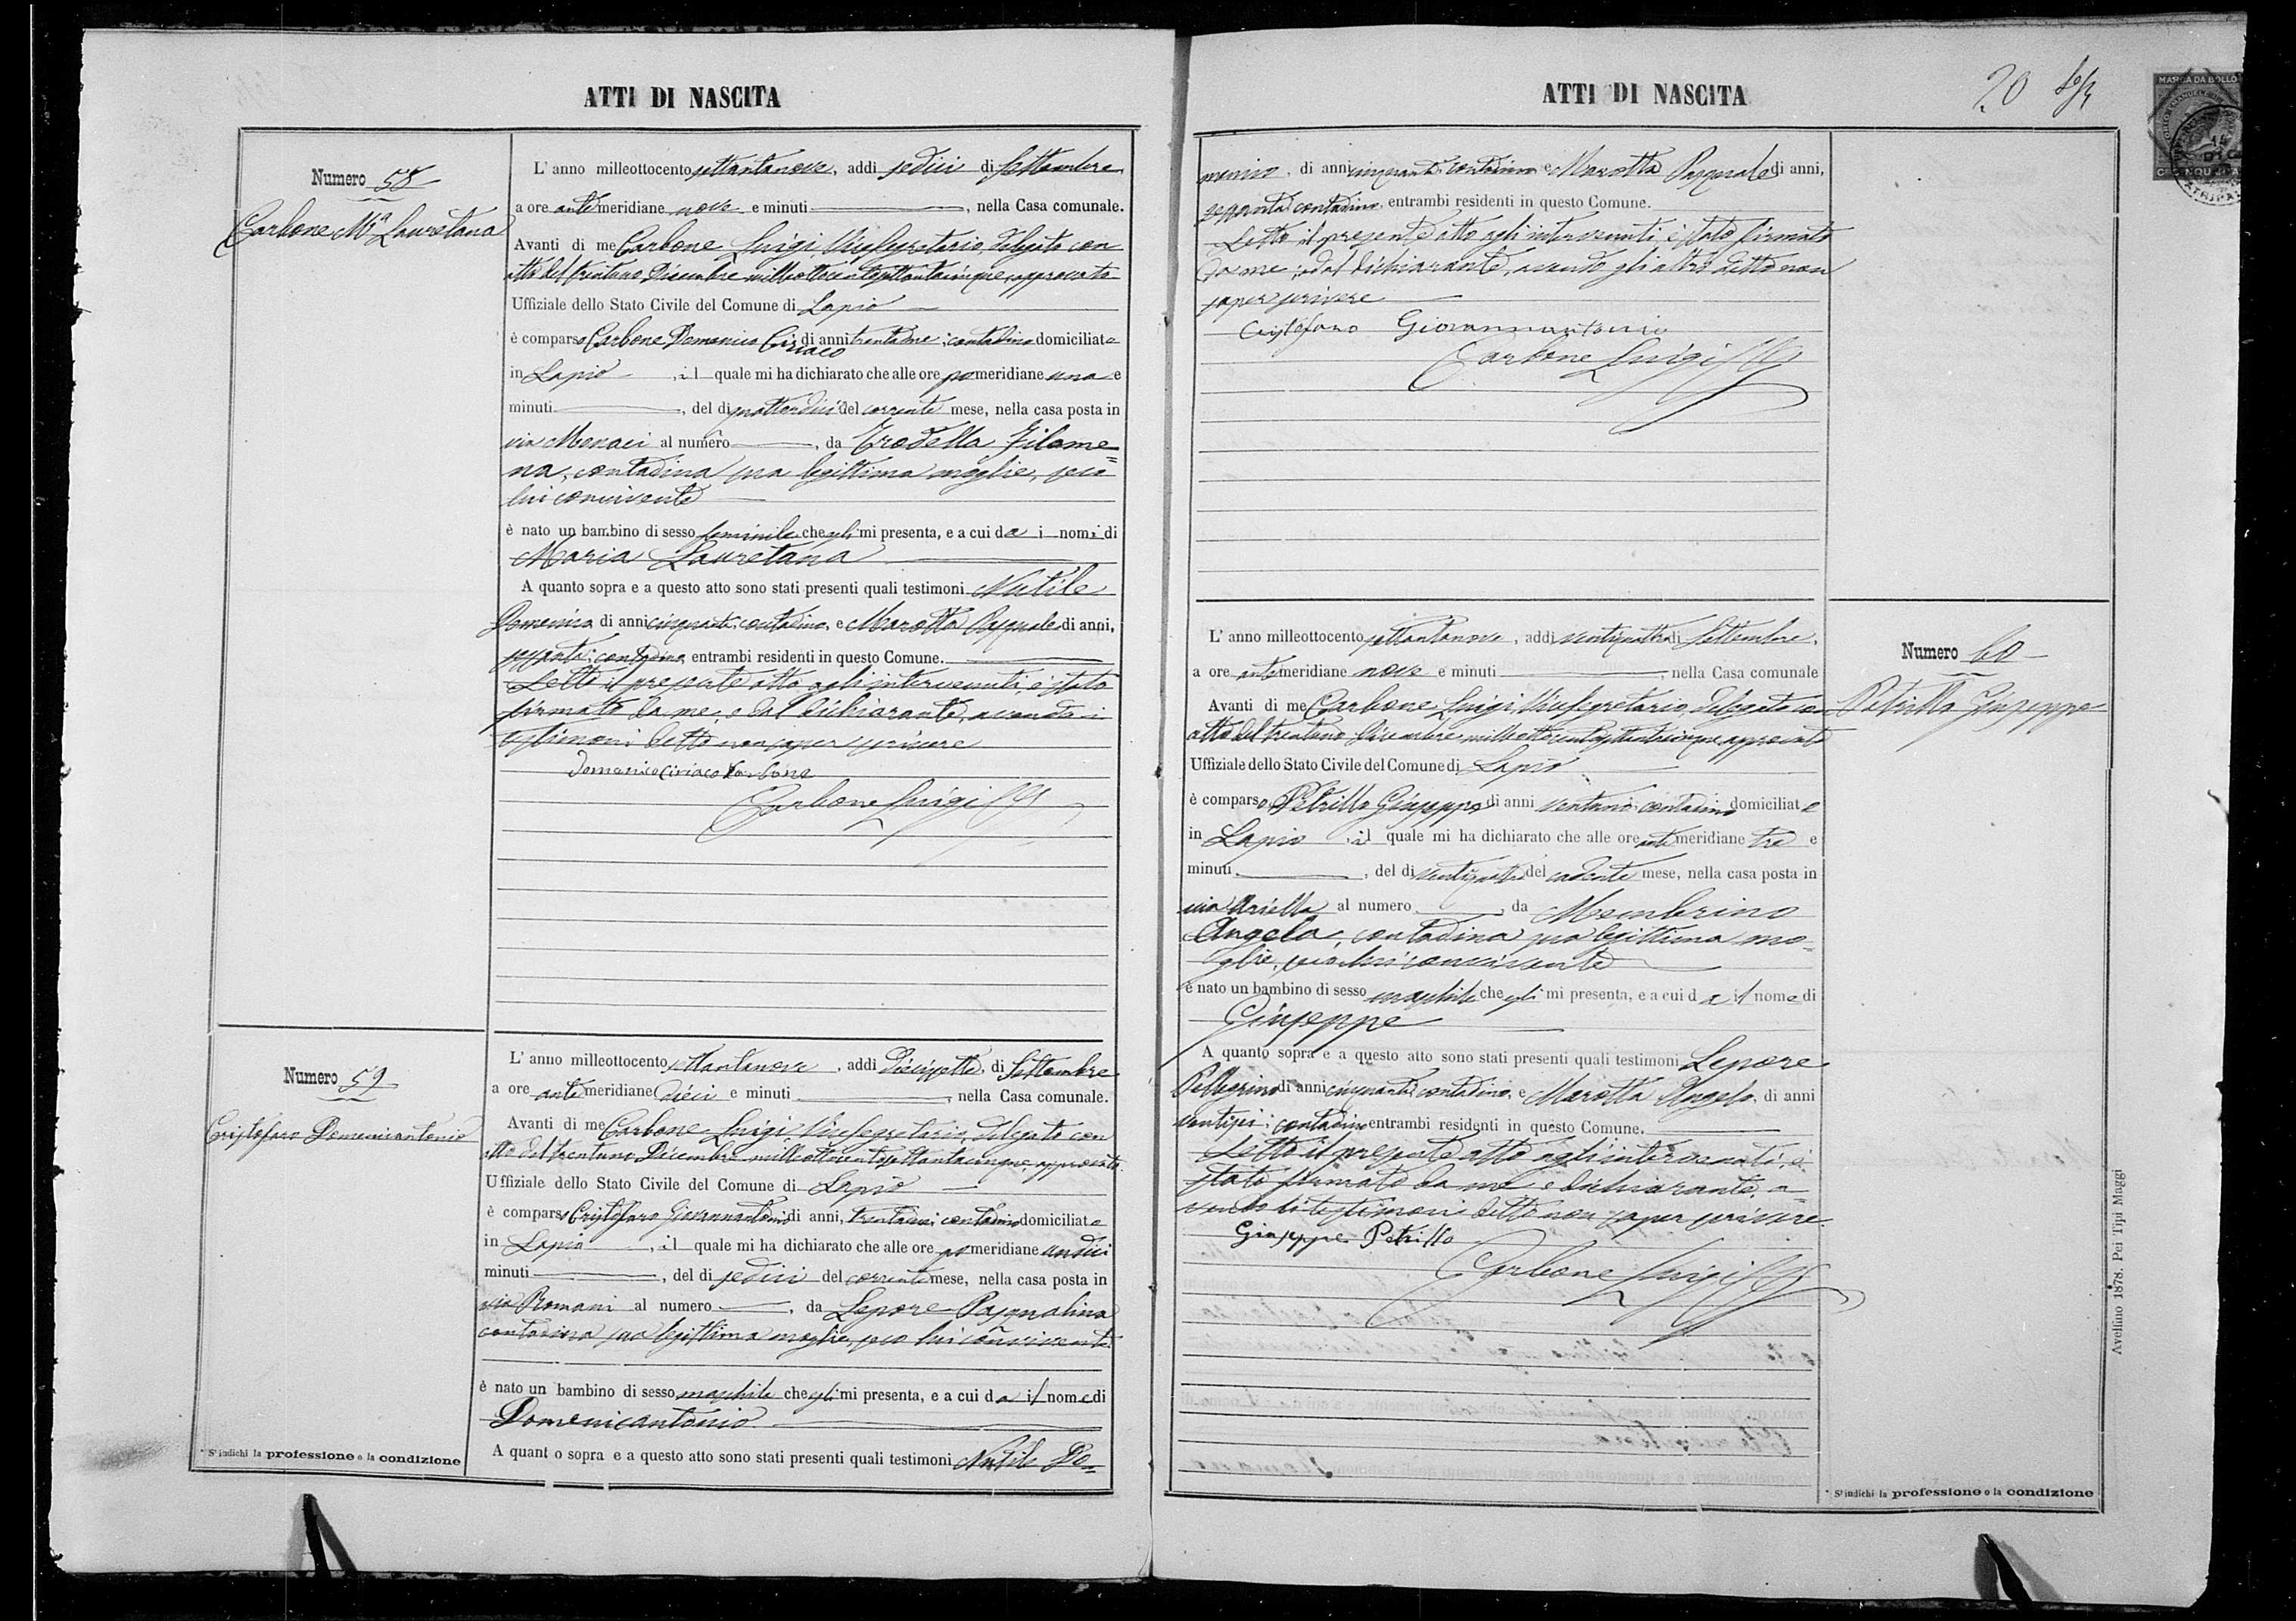 ATTI DI NASCITA
Numero 58
Carbone Mª Lauretana
L' anno milleottocento settantanove, addi sedici di Settembre
a ore antemeridiane nove e minuti , nella Casa comunale.
Avanti di me Carbone Luigi Vicesegretario, delegato con
atto del trentuno Dicembre milleottocentosettantacinque, approvato
Uffiziale dello Stato Civile del Comune di Lapio
è comparso Carbone Domenico Ciriaco di anni contadino domiciliato
in Lapio , il quale mi ha dichiarato che alle ore pomeridiane una e
minuti , del di quattordici del corrente mese, nella casa posta in
via Monaci al numero , da Trodella Filome=
na, contadina sua legittima moglie, seco
lui convivente
è nato un bambino di sesso feminile che egli mi presenta, e a cui da i nomi di
Maria Lauretana
A quanto sopra e a questo atto sono stati presenti quali testimoni Nutile
Domenico di anni cinquanta, contadino, e Marotta Pasquale di anni,
sessanta, contadino, entrambi residenti in questo Comune.
Letto il presente atto agli intervenuti, è stato
firmato da me, e dal dichiarante, avendo i
testimoni detto non saper scrivere
Domenico Ciriaco Carbone
Carbone Luigi
Numero 59
Cristofaro Domenicantonio
L' anno milleottocento settantanove, addi diecissette, di Settembre
a ore antemeridiane dieci e minuti , nella Casa comunale.
Avanti di me Carbone Luigi Vicesegretario, delegato con
atto del trentuno Dicembre milleottocentosettantacinque, approvato
Uffiziale dello Stato Civile del Comune di Lapio
è comparso Cristofaro Giovannantonio di anni, contadino domiciliato
in Lapio , il quale mi ha dichiarato che alle ore pomeridiane undici
minuti , del di sedici del corrente mese, nella casa posta in
via Romani al numero , da Lepore Pasqualina
contadina sua legittima moglie, seco lui convivente
è nato un bambino di sesso maschile che egli mi presenta, e a cui da il nome di
Domenicantonio
A quant o sopra e a questo atto sono stati presenti quali testimoni Nutile Do=
* S' indichi la professione o la condizione
ATTI DI NASCITA
20
MARCA DA BOLLO
menico, di anni cinquanta, contadino e Marotta Pasquale di anni,
sessanta, contadino, entrambi residenti in questo Comune.
Letto il presente atto agli intervenuti, è stato firmato
da me, e dal dichiarante, avendo gli altri detto non
saper scrivere
Cristofaro Giovannantonio
Carbone Luigi
Numero 60
Petrillo Giuseppe
L' anno milleottocento settantanove, addi ventiquattro di Settembre,
a ore antemeridiane nove e minuti , nella Casa comunale
Avanti di me Carbone Luigi Vicesegretario, delegato con
atto del trentuno Dicembre milleottocentosettantacinque, approvato
Uffiziale dello Stato Civile del Comune di Lapio
è comparso Petrillo Giuseppe, di anni contadino domiciliato
in Lapio , il quale mi ha dichiarato che alle ore antemeridiane tre e
minuti , del di ventiquattro del cadente mese, nella casa posta in
via Ariella al numero , da Membrino
Angela, contadina sua legittima mo=
glie, seco lui convivente
è nato un bambino di sesso maschile che egli mi presenta, e a cui da il nome di
Giuseppe
A quanto sopra e a questo atto sono stati presenti quali testimoni Lepore
Pellegrino di anni cinquanta, contadino, e Marotta Angelo, di anni
ventisei, contadino entrambi residenti in questo Comune.
Letto il presente atto agli intervenuti, è
stato firmato da me e dichiarante, a=
vendo i testimoni detto non saper scrivere
Giuseppe Petrillo
Carbone Luigi
Avellino 1878. Pei Tipi Maggi
* S' indichi la professione o la condizione